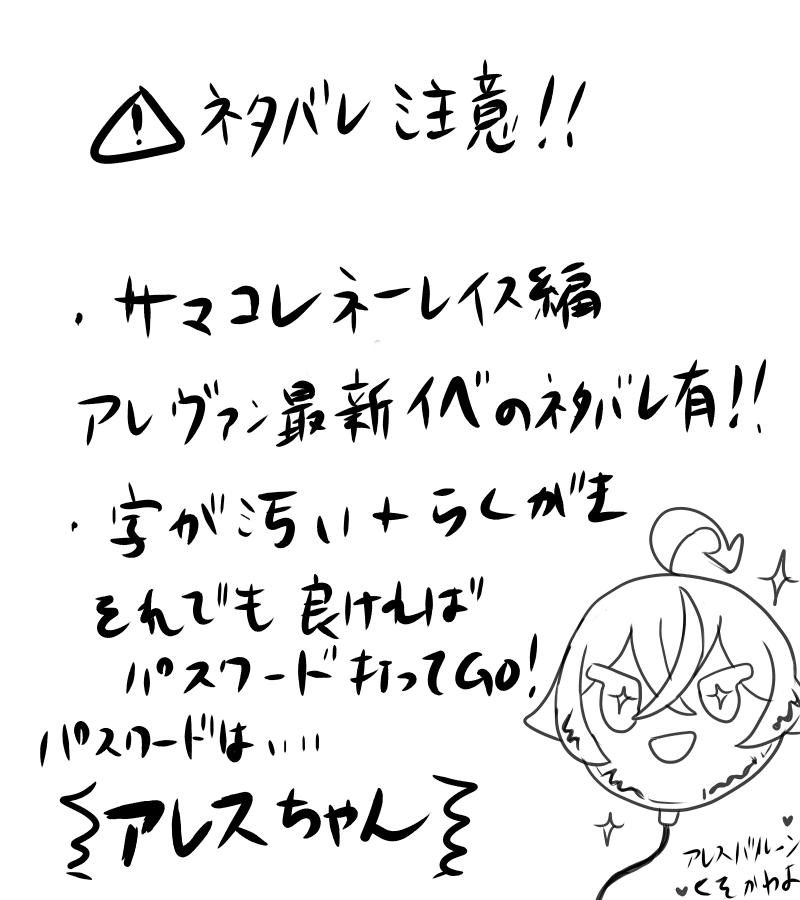 ⚠ネタバレ注意!!
・サマコレネーレイス編
アレヴァン最新イベのネタバレ有!!
・字が汚い+らくがき
それでも良ければ
パスワード打ってGO!
パスワードは....
アレスちゃん
アレスバルーン
くそかわよ